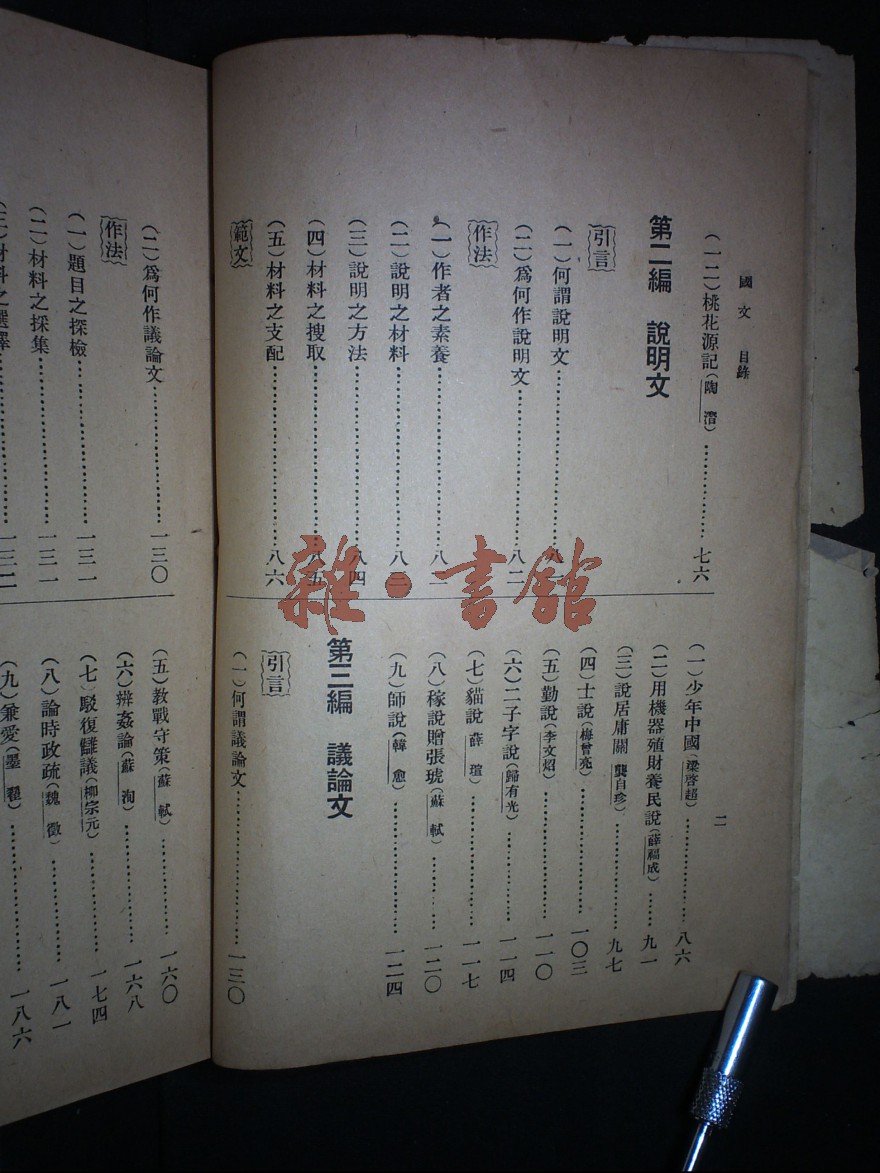 國文 目錄
二
(一二)桃花源記(陶潛)……七六
第二編 說明文
引言
(一)何謂說明文……八
(二)爲何作說明文……八二
作法
(一)作者之素養……八二
(二)說明之材料……八三
(三)說明之方法……八四
(四)材料之搜取……八五
(五)材料之支配……八六
範文
(一)少年中國(梁啓超)……八六
(二)用機器殖財養民說(薛福成)……九一
(三)說居庸關(龔自珍)……九七
(四)士說(梅曾亮)……一〇三
(五)勤說(李文炤)……一一〇
(六)二子字說(歸有光)……一一四
(七)貓說(薛瑄)……一一七
(八)稼說贈張琥(蘇軾)……一二〇
(九)師說(韓愈)……一二四
第三編 議論文
引言
(一)何謂議論文……一三〇
(二)爲何作議論文……一三〇
作法
(一)題目之探檢……一三一
(二)材料之採集……一三一
(三)材料之選擇……一三二
(五)教戰守策(蘇軾)……一六〇
(六)辨姦論(蘇洵)……一六八
(七)駁復讎議(柳宗元)……一七四
(八)論時政疏(魏徵)……一八一
(九)兼愛(墨翟)……一八六
雜·書館